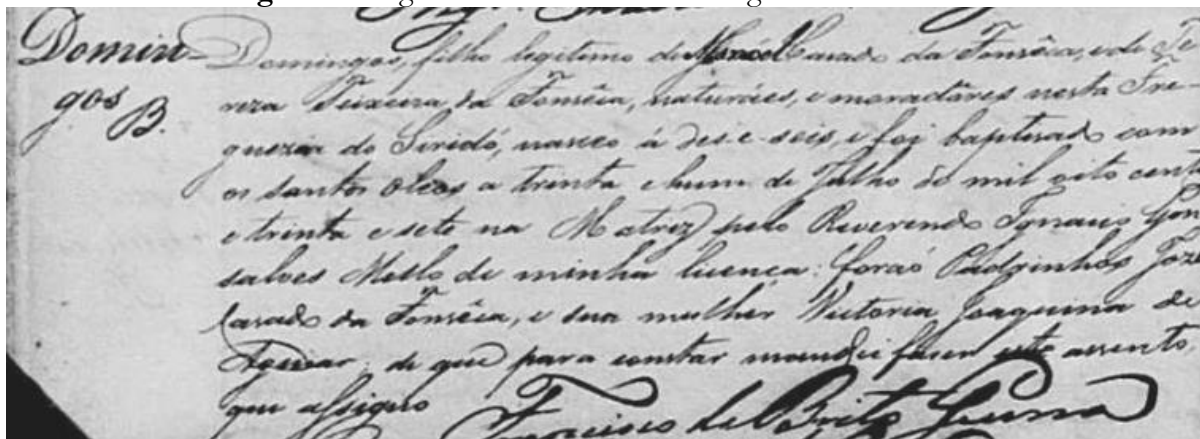 Domin-
gos
B.
Domingos, filho legitimo de Manoel Casado da Fonsêca, e de Te
reza Teixeira da Fonsêca, naturáes, e moradôres nesta Fre-
guezia do Siridó, nasceo á des e seis, e foi baptisado com
os santos oleos a trinta e hum de Julho de mil oito cent
e trinta e sete na Matriz pelo Reverendo Ignacio Gon
salves Mello de minha licença: forao Padrinhos Joze
Casado da Fonsêca, e sua mulher Victoria Joaquina de
de que para constar mandei fazer este assento,
que assigno
Francisco de Brito Guerra